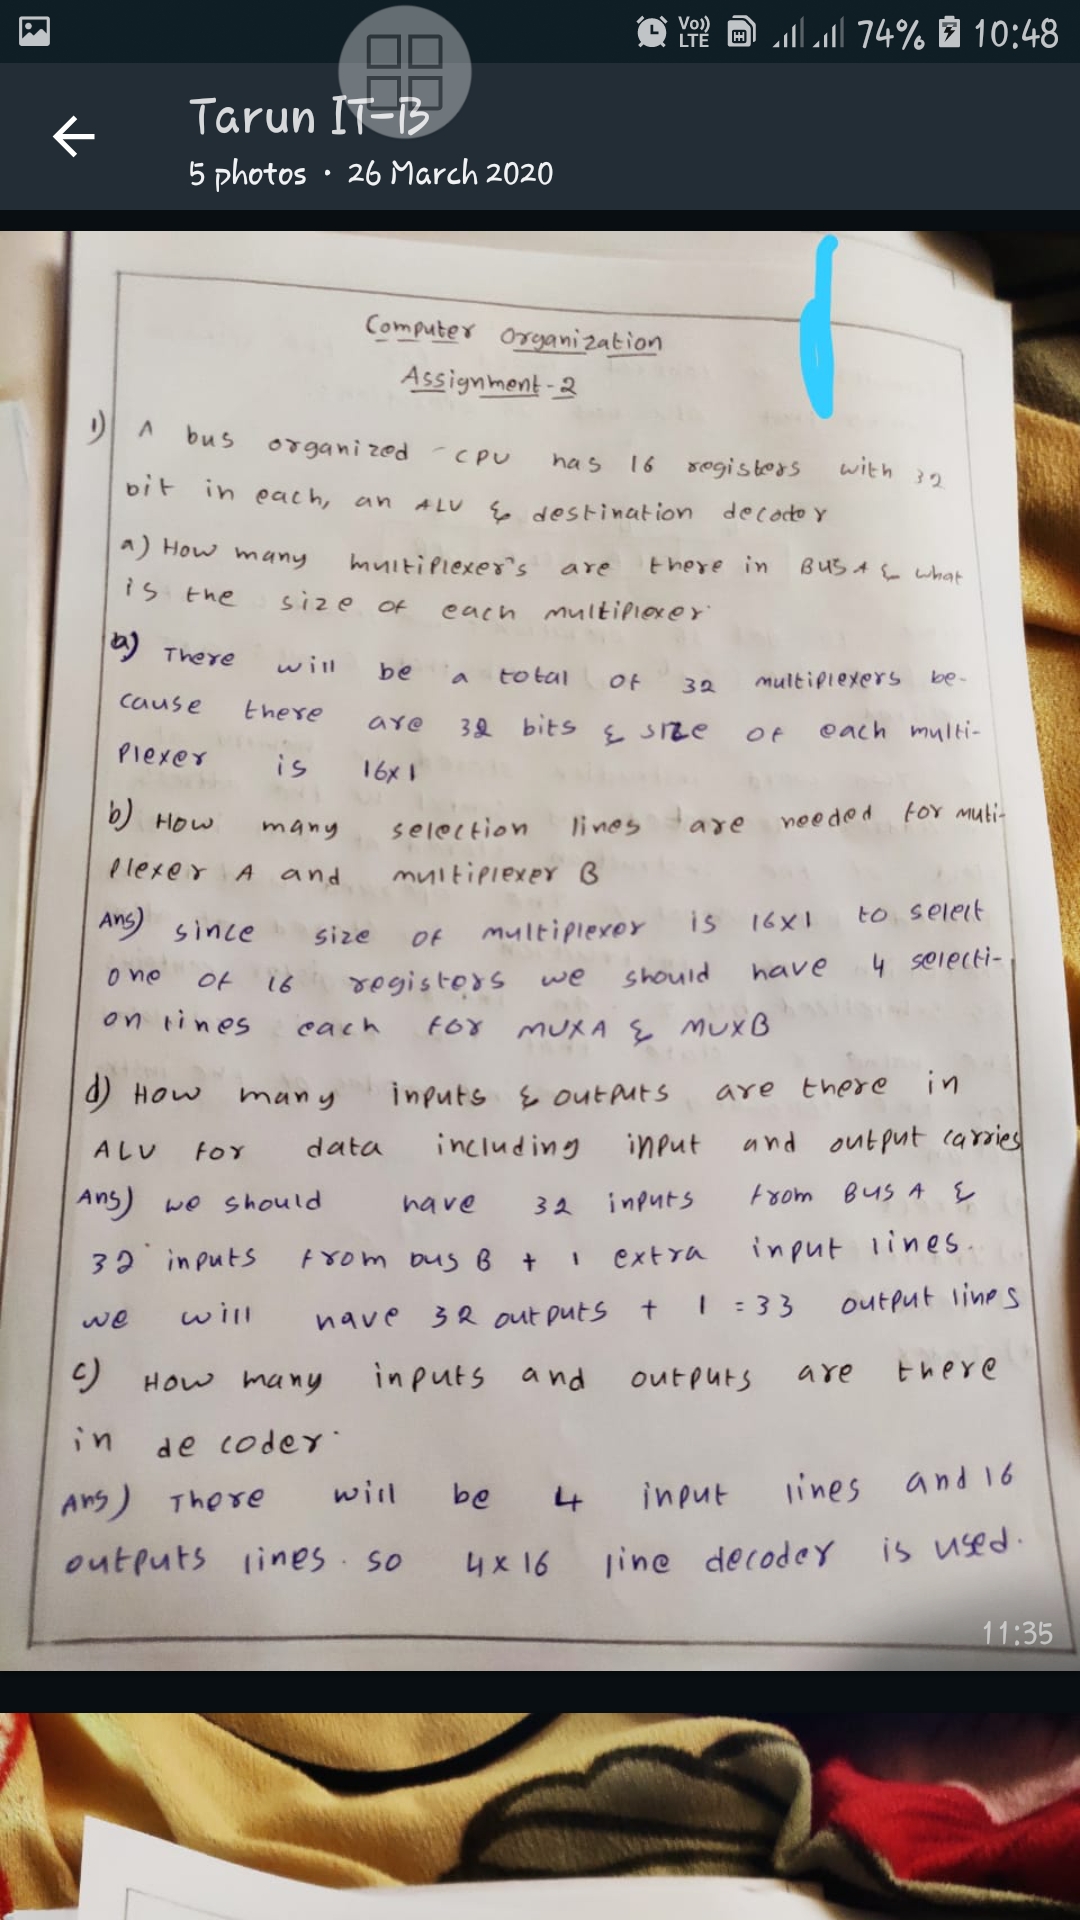 Vo)) LTE 74% 10:48
Tarun IT-B
5 photos • 26 March 2020
Computer Organization
Assignment-2
1) A bus organized -CPU has 16 registers with 32
bit in each, an ALU & destination decoder
a) How many multiplexer's are there in BUS A & what
is the size of each multiplexer.
a) There will be a total of 32 multiplexers be-
cause there are 32 bits & size of each multi-
plexer is 16x1
b) How many selection lines are needed for muti-
plexer A and multiplexer B
Ans) since size of multiplexer is 16x1 to select
one of 16 registers we should have 4 selecti-
on lines each for MUXA & MUXB
d) How many inputs & outputs are there in
ALU for data including input and output carries
Ans) we should have 32 inputs from BUS A &
32 inputs from bus B + 1 extra input lines.
we will have 32 outputs + 1 = 33 output lines
c) How many inputs and outputs are there
in decoder.
Ans) There will be 4 input lines and 16
outputs lines. so 4x16 line decoder is used.
11:35